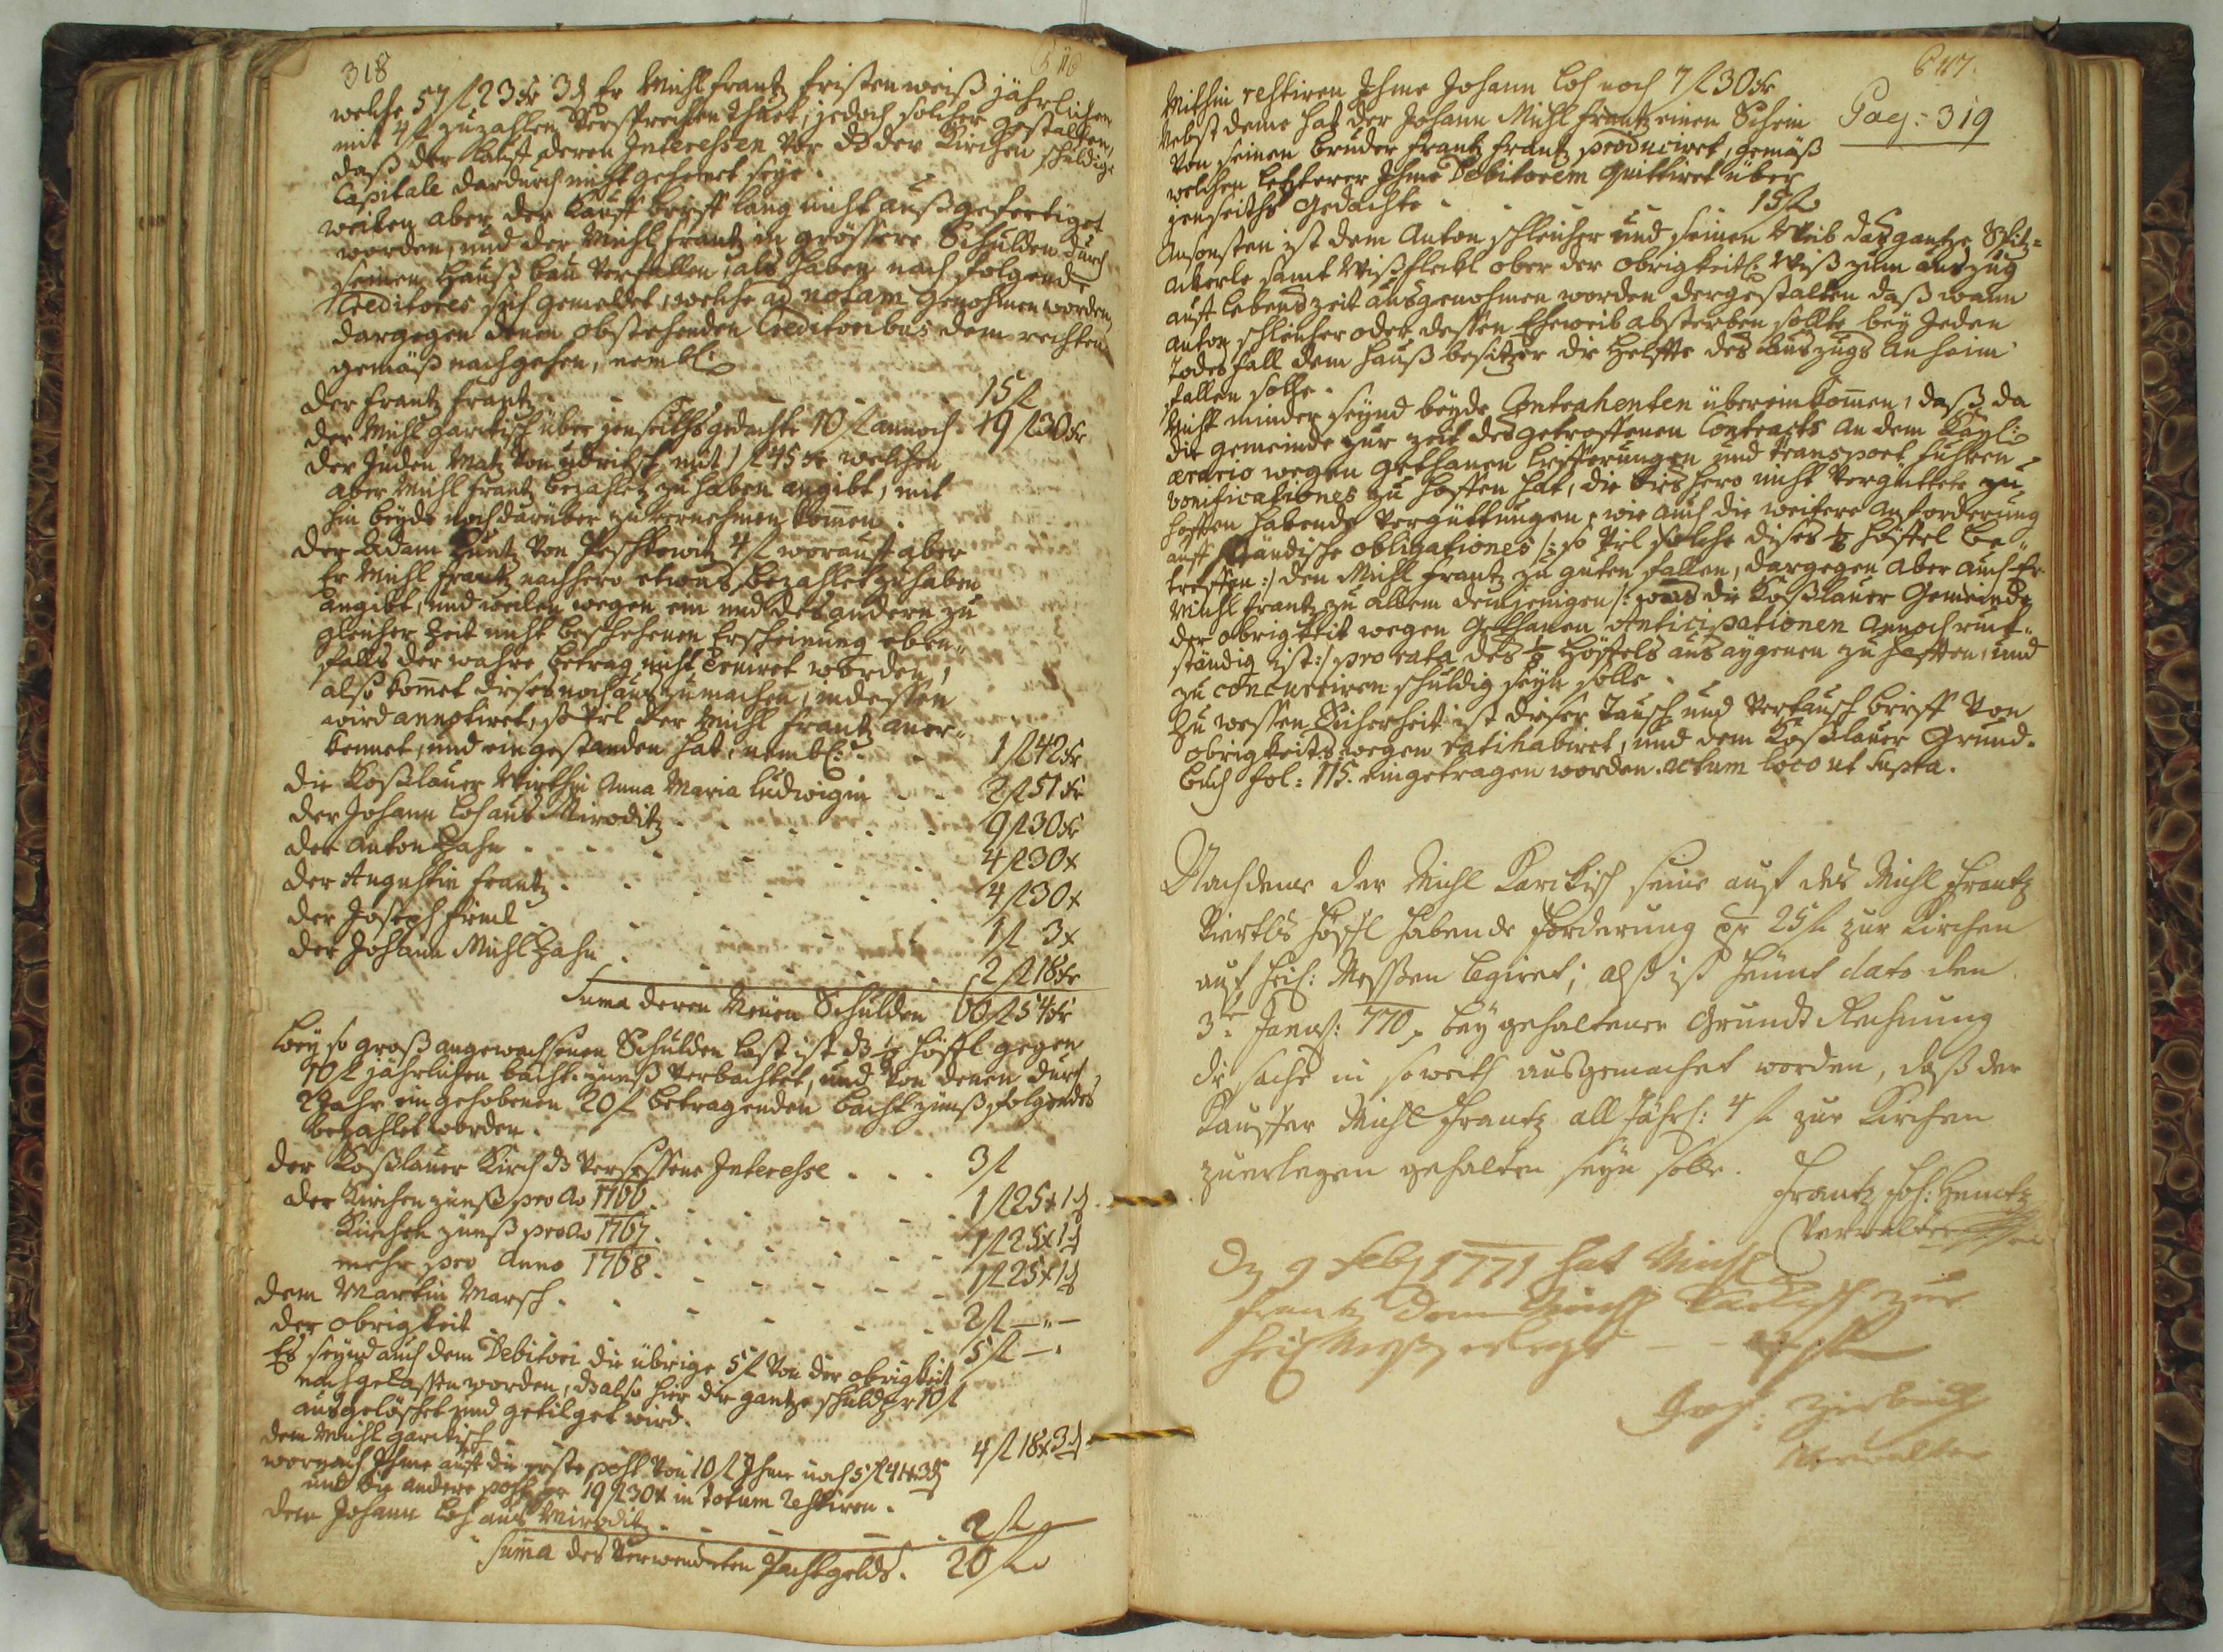 318
welche 57 fl 23 xr 3 d Er Michl Frantz fristenweiß jährlichen
mit 4 fl zuzahlen versprechen thuet, jedoch solcher gestalten,
daß der Lauff deren Interessen vor d der Kirchen schuldige
Capitale dardurch nicht gehemet seye.
weilen aber der Kauff brieff lang nicht außgefertiget
worden, und der Michl Frantz in grössere Schulden durch
seinen Hauß bau verfallen, als haben nach folgende
Creditores sich gemeldet, welche ad notam genohmen worden,
dargegen denen obstehenden Creditoribus dem rechten
gemäß nachgehen, nembl:
Der Frantz Frantz 15 fl
Der Michl Garckisch über jenseiths gedachte 10 fl annoch 19 fl 30 xr
Der Juden Matz von Udritsch mit 1 fl 45 xr welchen
aber Michl Frantz bezahlet zu haben angibt, mit
hin beyde noch darüber zu vernehmen komen.
Der Adam Kuntz von Peschkowitz 4 fl worauff aber
Er Michl Frantz nachhero etwas bezahlet zu haben
angibt, und weilen wegen ein und des andern zu
gleicher Zeit nicht beschehenen Erscheinung eben-
falls der wahre betrag nicht worden,
also komet dieses noch auszumachen, indessen
wird annotiret, so viel der Michl Frantz aner-
kennet, und eingestanden hat, nembl: 1 fl 42 xr
Die Koßlauer Würthin Anna Maria Ludwigin 2 fl 51 xr
Der Johann Loh aus Miroditz 9 fl 30 xr
Der Anton Hahn 4 fl 30 x
Der Augustin Frantz 4 fl 30 x
Der Joseph 1 fl 3 x
Der Johann Michl Hahn 2 fl 18 xr
Suma deren Neuen Schulden 60 fl 54 xr
Bey so groß angewachsenen Schulden last ist d 1/8 Höffl gegen
10 fl jährlichen bacht zünß verbachtet, und von denen durch
2 Jahr eingehobenen 20 fl betragenden bacht zünß folgendes
bezahlet worden.
Der Koßlauer Kirch d versessene Interesse 3 fl
der Kirchen zünß pro Ao 1766 1 fl 25 x 1 d
Kirchen zünß pro Ao 1767 1 fl 25 x 1 d
mehr pro Anno 1768 1 fl 25 x 1 d
dem Martin Marsch 2 fl
der Obrigkeit 5 fl
Es seynd auch dem Debitori die übrige 5 fl von der Obrigkeit
nachgelassen worden, d also hier die gantze schuld pr 10 fl
ausgelöschet und getilget wird.
dem Michl Garckisch 4 fl 18 x 3 d
wornach Ihme auff die erste post von 10 fl Ihme noch 5 fl 41 x 3 d
und die andere post pr 19 fl 30 x in totum restiren.
dem Johann Loh aus Miroditz 2 fl
Summa des verwendeten Pachtgelds 20 fl
617.
Pag: 319
Mithin restiren Ihme Johann Loh noch 7 fl 30 xr
Nebst deme hat der Johann Michl Frantz einen Schein
von seinen bruder Frantz Frantz produciret, gemäß
welchen letzterer Ihme Debitorem quittiret über
jenseiths gedachte 15 fl
Ansonsten ist dem Anton Schleicher und seinen Weib das gantze Spitz-
ackerle samt Wißfleckl ober der obrigkeitl: Wiß zum auszug
auff lebenszeit ausgenohmen worden dergestalten daß wann
Anton Schleicher oder dessen Eheweib absterben sollte, bey Jeden
Todes fall dem Hauß besitzer die Helffte des Auszugs anheim
fallen solle.
Nicht minder seynd beyde Contrahenten übereinkomen, daß da
die Gemeinde zur zeit des getroffenen Contracts an dem Kayl:
aerario wegen gethanen Liefferungen und Transport fuhren
bonificationes zu hoffen hat, die bis hero nicht vergüttete zu
hoffen habende Vergüttungen, wie auch die weitere anforderung
auff Ständische obligationes /: so viel solche dises 1/8 Höffel be-
treffen :/ den Michl Frantz zu guten fallen, dargegen aber auch Er
Michl Frantz zu allem demjenigen /: was die Koßlauer Gemeinde
der Obrigkeit wegen gethanen Anticipationen annoch ruck-
ständig ist :/ pro rata des 1/8 Höffels aus aygenen zu hafften, und
zu concurriren schuldig seyn solle.
Zu wessen Sicherheit ist dieser Tausch und Verkausch brieff von
Obrigkeits wegen ratihabiret, und dem Koßlauer Grund-
buch fol: 115. eingetragen worden. actum loco ut supra.
Nachdeme der Michl Karckisch seine auff des Michl Frantz
Viertls Höffl habende Forderung pr 25 fl zur Kirchen
auf heil: Messen legiret; alß ist heunt dato den
3t Janu: 770, bey gehaltener Grundt Rechnung
die sache in soweith ausgemachet worden, daß der
Kauffer Michl Frantz all Jährl: 4 fl zur Kirchen
zuerlegen gehalten seyn solle.
Frantz Joh:
Verwalter
Dn 9 Feb 1771 hat Michl
Frantz dem Michl Karckisch zur
heil Messen erlegt
Verwalter